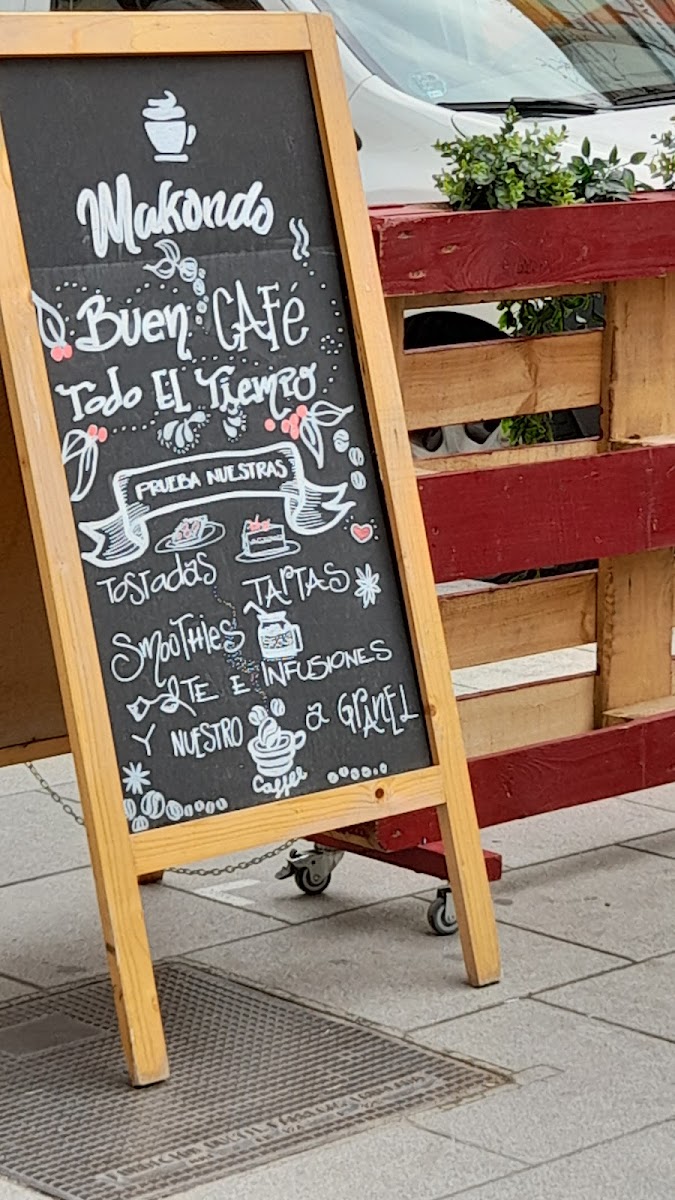 Makondo
Buen CAFé
Todo EL Tiempo
PRUEBA NUESTRAS
TOSTadas TARTAS
SMOOTHIES
TE E INFUSIONES
Y NUESTRO a GRANEL
Coffee